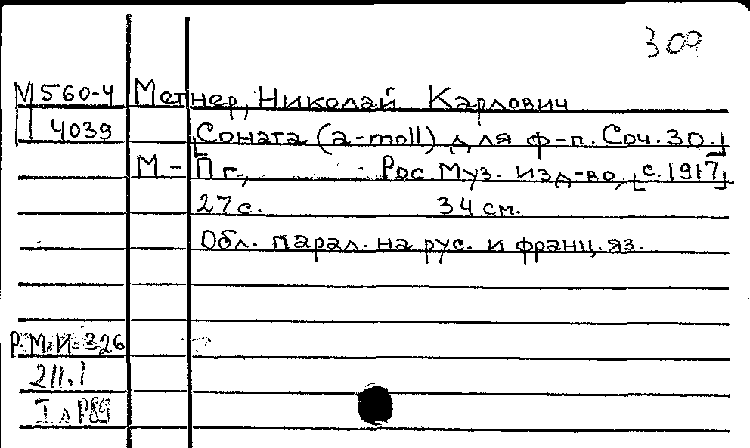 309
М560-4 Метнер, Николай Карлович
4039 [Соната (a-moll) для ф-п. Соч. 30.]
М - Пг, Рос Муз. изд-во, [с. 1917]
27 с. 34 см.
Обл. парал. на рус. и франц. яз.
Р.М.И-326
211.1